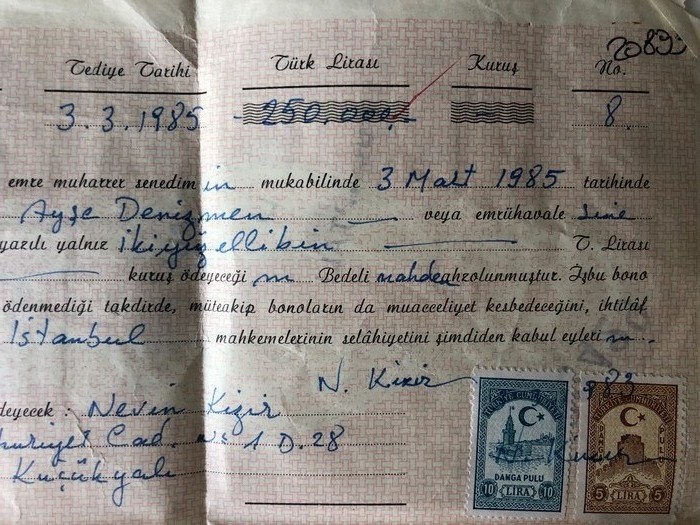 20893
Tediye Tarihi Türk Lirası Kuruş No.
3.3.1985 -250.000,- — 8
emre muharrer senedim in mukabilinde 3 Mart 1985 tarihinde
Ayşe Denizmen — veya emrühavale sine
yazılı yalnız ikiyüzellibin — T. Lirası
— kuruş ödeyeceğ im Bedeli nahden ahzolunmuştur. İşbu bono
ödenmediği takdirde, müteakip bonoların da muacceliyet kesbedeceğini, ihtilâf
İstanbul mahkemelerinin selâhiyetini şimdiden kabul eyleri m.
N. Kızır 983
deyecek : Nevin Kızır
huriyet Cad. No: 1 D. 28
Küçükyalı
TÜRKİYE CUMHURİYETİ
DAMGA PULU
10 LİRA 10
TÜRKİYE CUMHURİYETİ
DAMGA PULU
5 LİRA 5